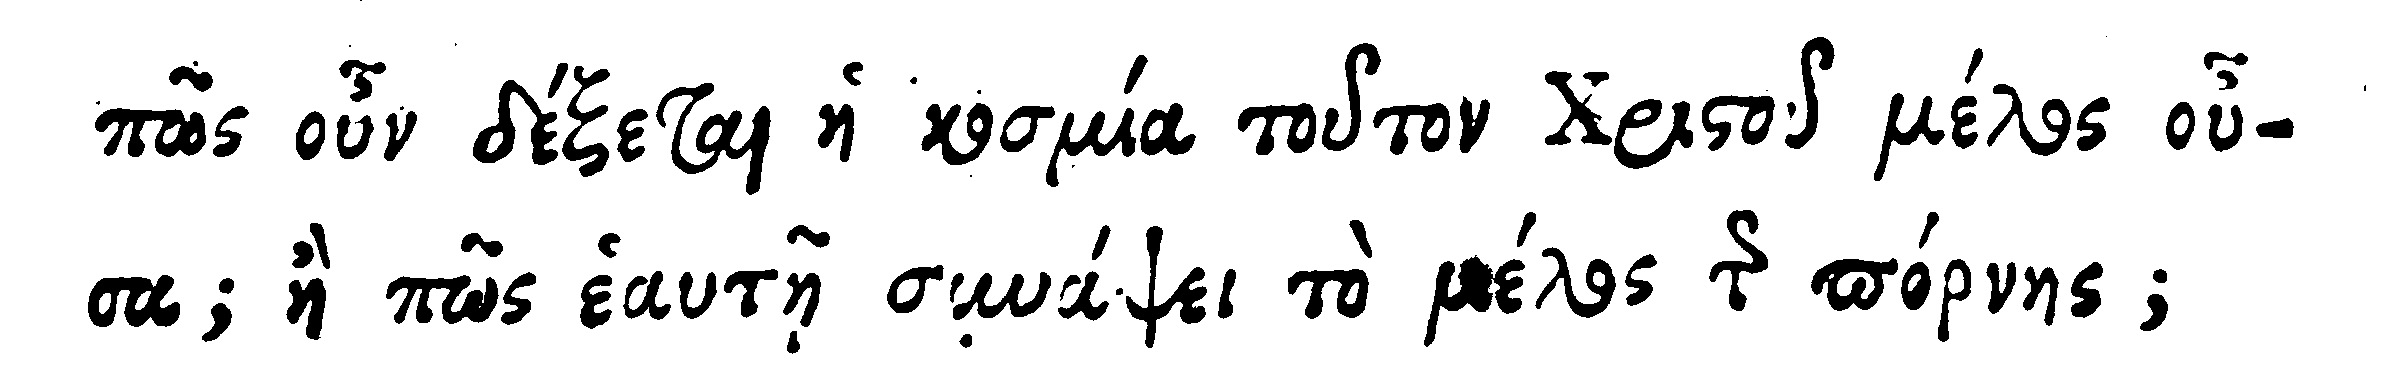 πῶς οὖν δέξεται ἡ κοσμία τοῦτον Χριστοῦ μέλος οὖ-
σα; ἢ πῶς ἑαυτῇ συνάψει τὸ μέλος τῆς πόρνης;